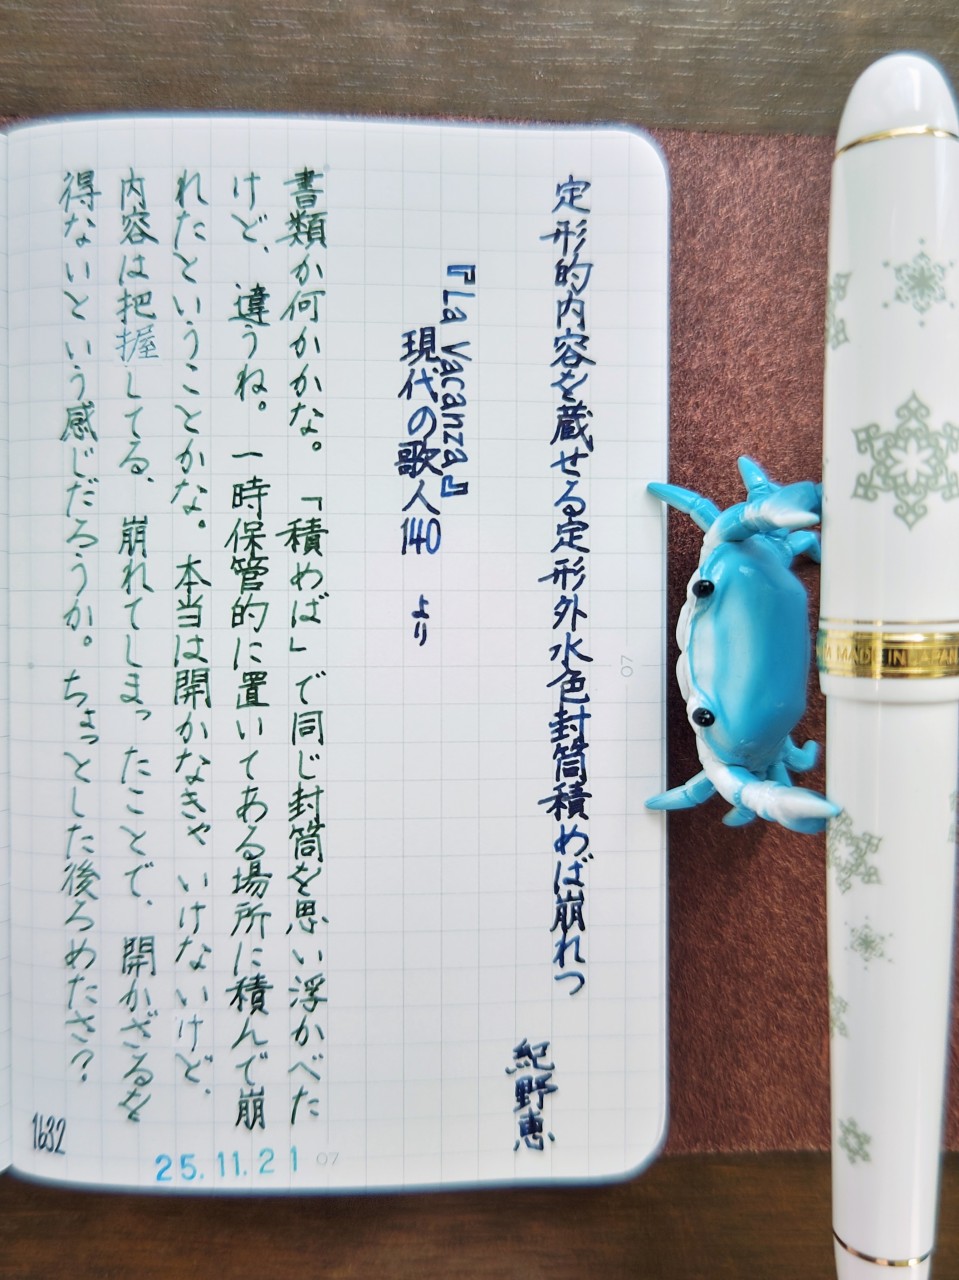 定形的内容を蔵せる定形外水色封筒積めば崩れつ
紀野恵
『La Vacanza』
現代の歌人140 より
書類か何かかな。「積めば」で同じ封筒を思い浮かべた
けど、違うね。一時保管的に置いてある場所に積んで崩
れたということかな。本当は開かなきゃいけないけど、
内容は把握してる、崩れてしまったことで、開かざるを
得ないという感じだろうか。ちょっとした後ろめたさ?
1632
25.11.21
07
07
MADE IN JAPAN